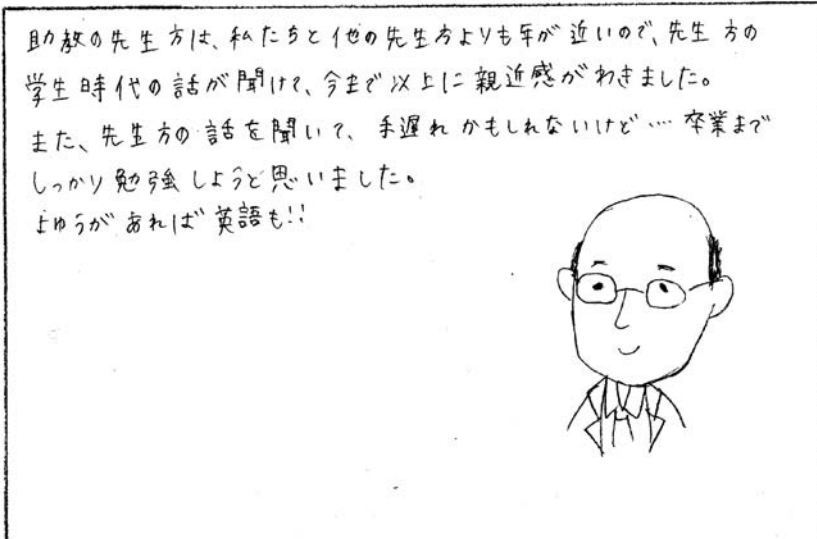 助教の先生方は、私たちと他の先生方よりも年が近いので、先生方の
学生時代の話が聞けて、今まで以上に親近感がわきました。
また、先生方の話を聞いて、手遅れかもしれないけど…卒業まで
しっかり勉強しようと思いました。
よゆうがあれば英語も!!